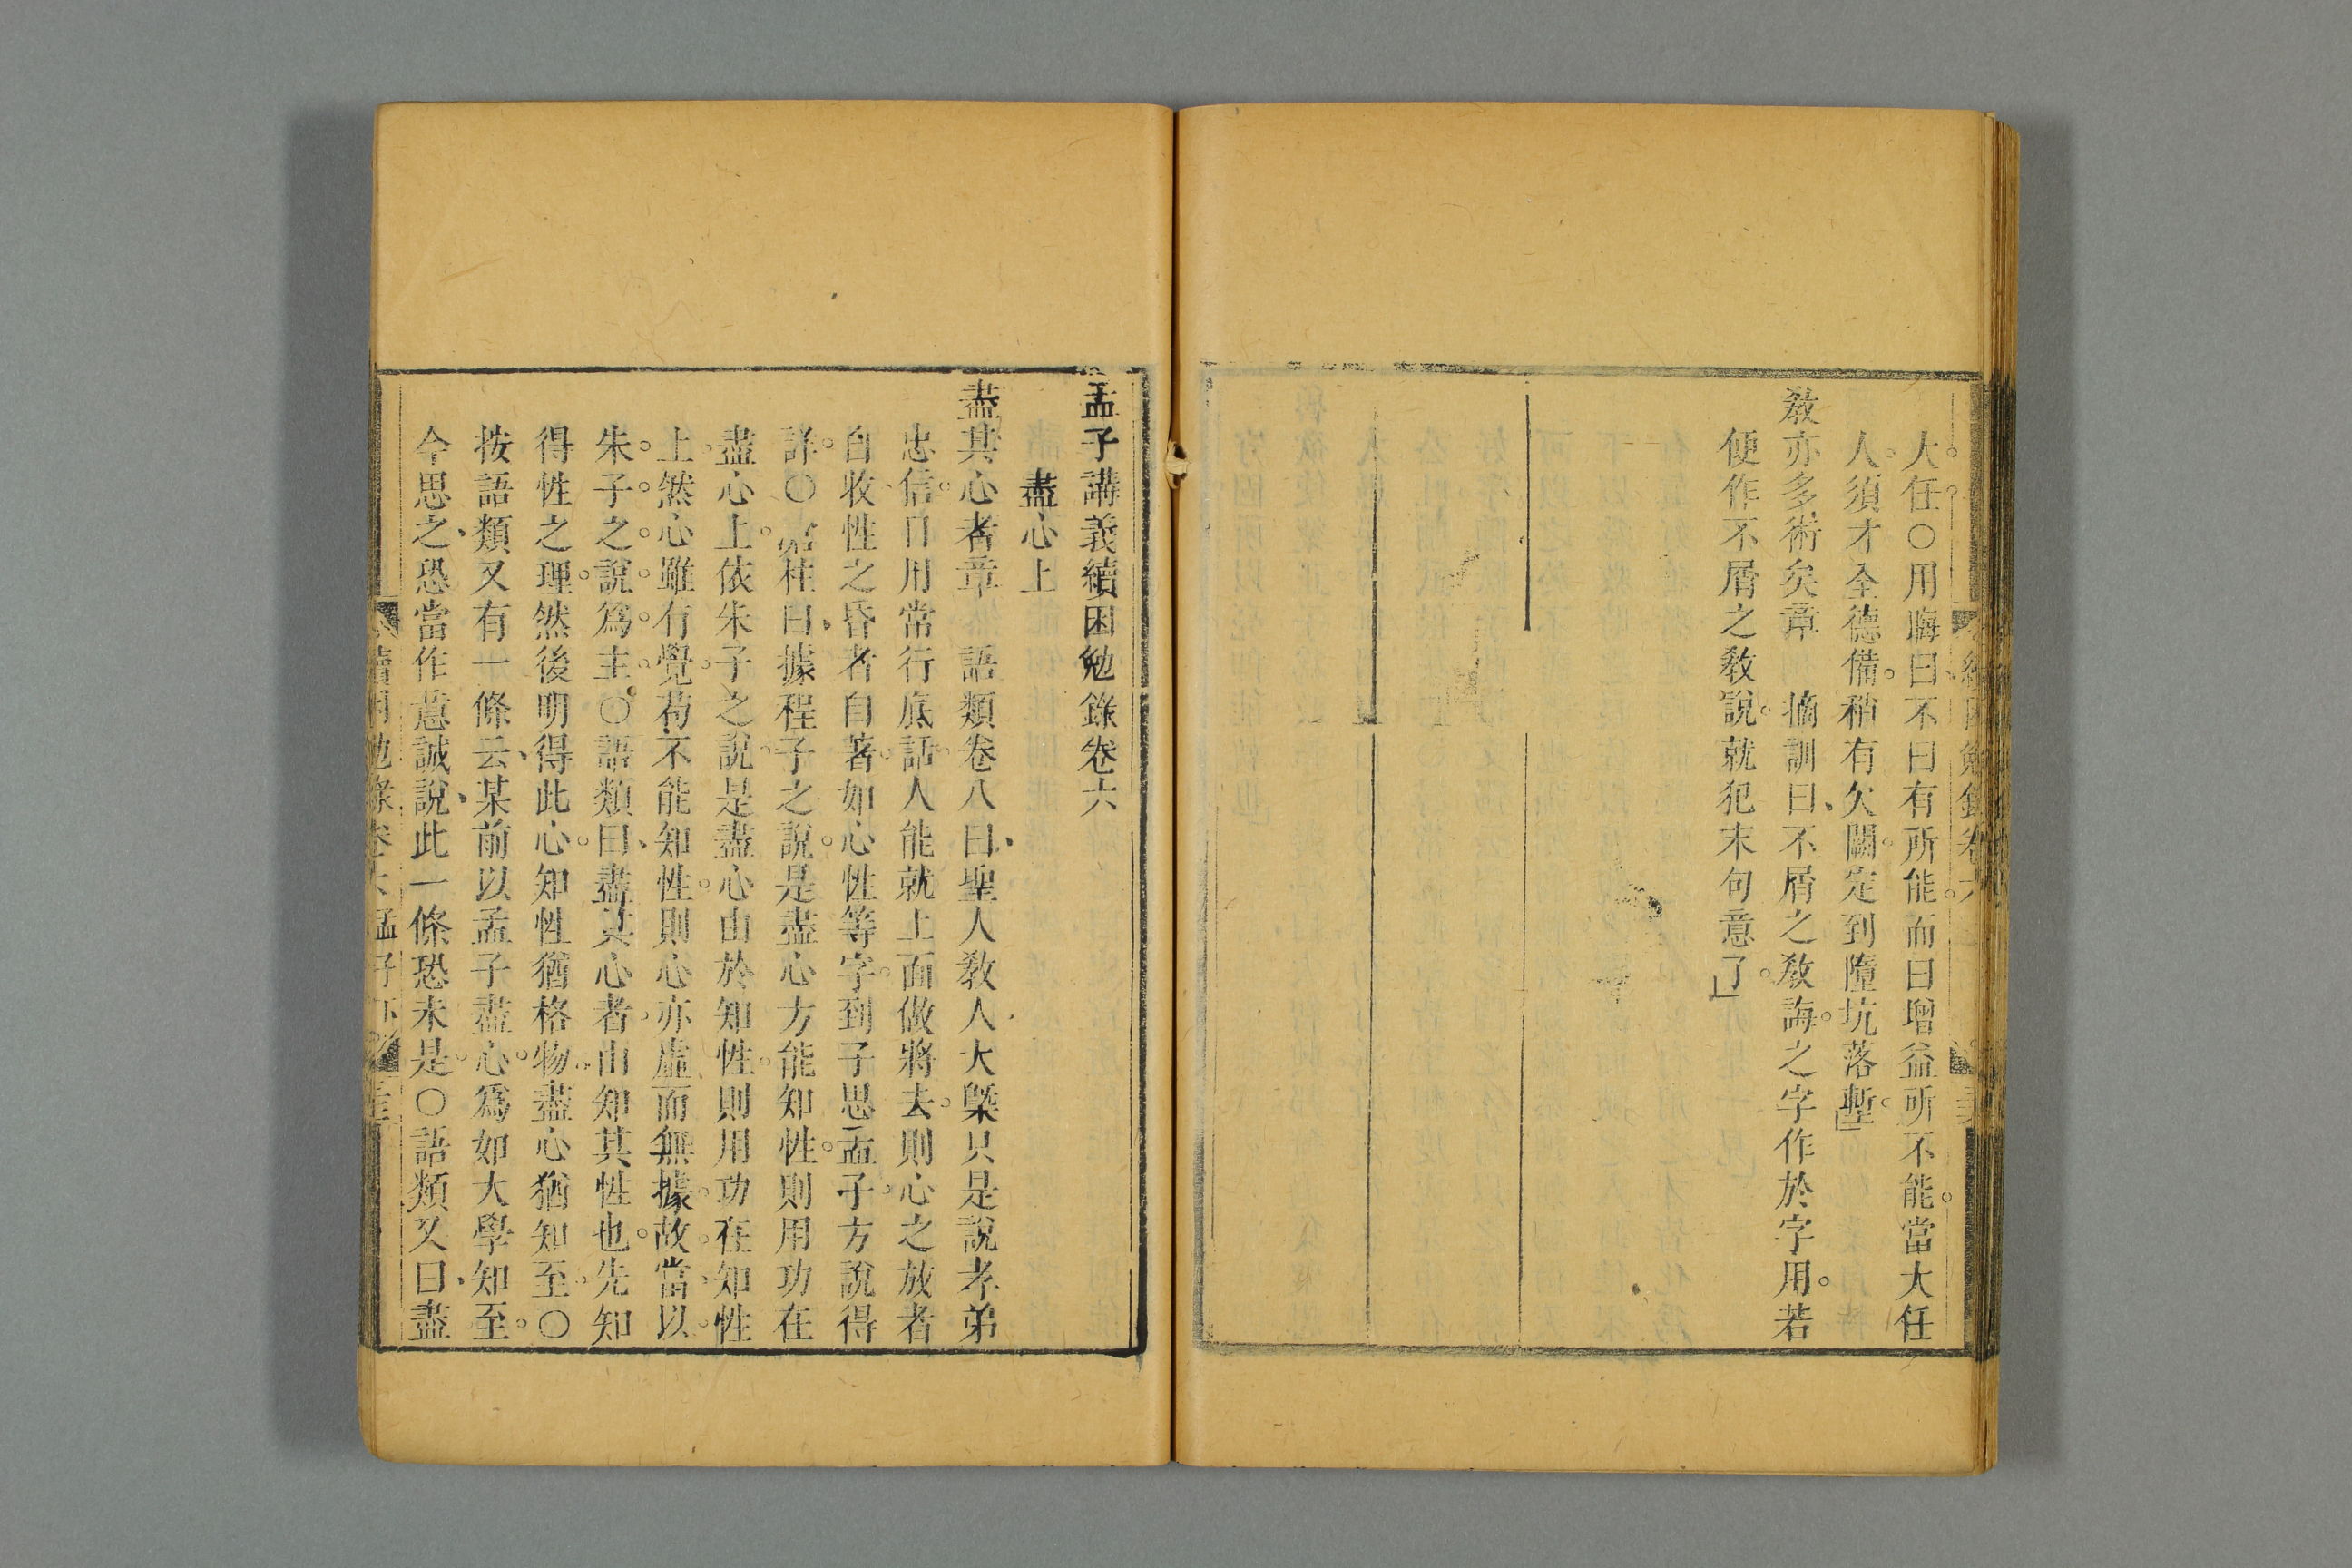 大任○用晦曰不曰有所能而曰增益所不能當大任
人須才全德備稍有欠闕定到墮坑落塹
教亦多術矣章　摘訓曰不屑之敎誨之字作於字用若
便作不屑之敎說就犯末句意了
孟子講義續困勉錄卷六
盡心上
盡其心者章　語類卷八曰聖人敎人大槩只是說孝弟
忠信日用常行底話人能就上面做將去則心之放者
自收性之昏者自著如心性等字到子思孟子方說得
詳○ 桂曰據程子之說是盡心方能知性則用功在
盡心上依朱子之說是盡心由於知性則用功在知性
上然心雖有覺苟不能知性則心亦虛而無據故當以
朱子之說爲主○語類曰盡其心者由知其性也先知
得性之理然後明得此心知性猶格物盡心猶知至○
按語類又有一條云某前以孟子盡心爲如大學知至
今思之恐當作意誠說此一條恐未是○語類又曰盡
續困勉錄卷六 孟子